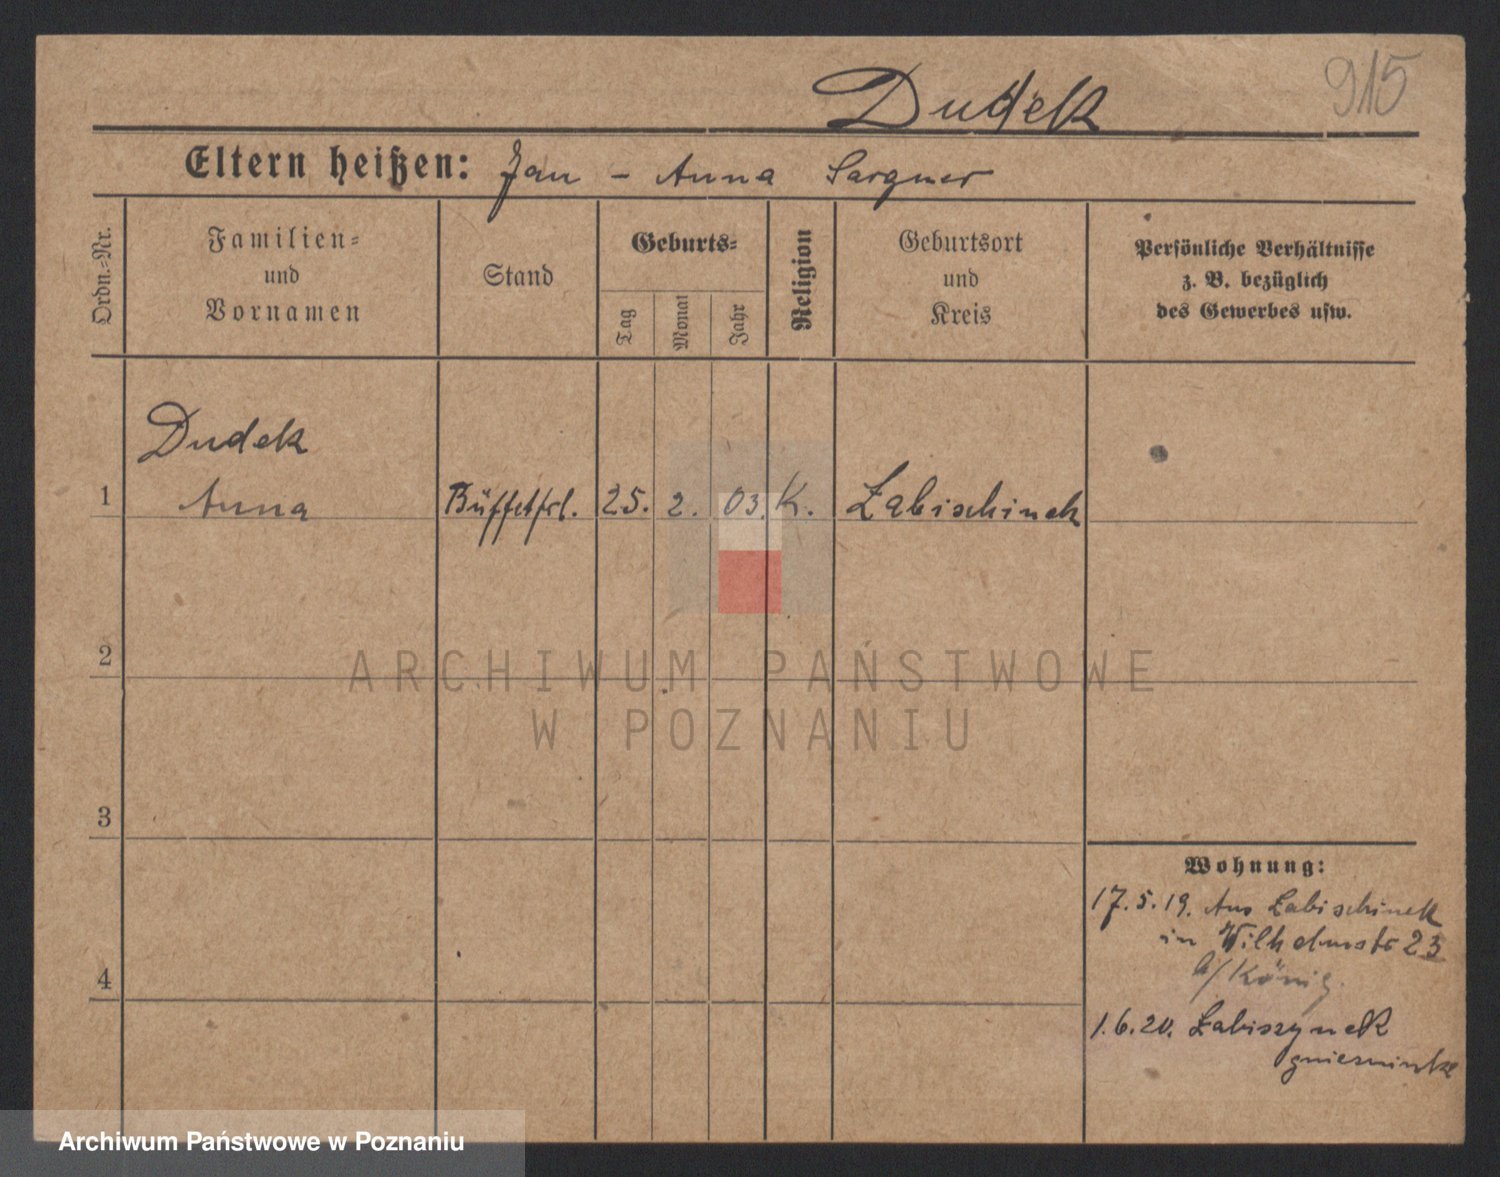 915
Dudek
Eltern heißen: Jan - Anna Sargner
Ordn.=Nr.
Familien=
und
Vornamen
Stand
Geburts=
Tag
Monat
Jahr
Religion
Geburtsort
und
Kreis
Persönliche Verhältnisse
z. B. bezüglich
des Gewerbes usw.
Dudek
1 Anna Büffetfrl. 25. 2. 03. K. Labischinek
2
3
4
Wohnung:
17.5.19. Aus Labischinek
in Wilhelmstr 23
b/ König.
1.6.20. Labiszynek
ARCHIWUM PAŃSTWOWE
W POZNANIU
Archiwum Państwowe w Poznaniu